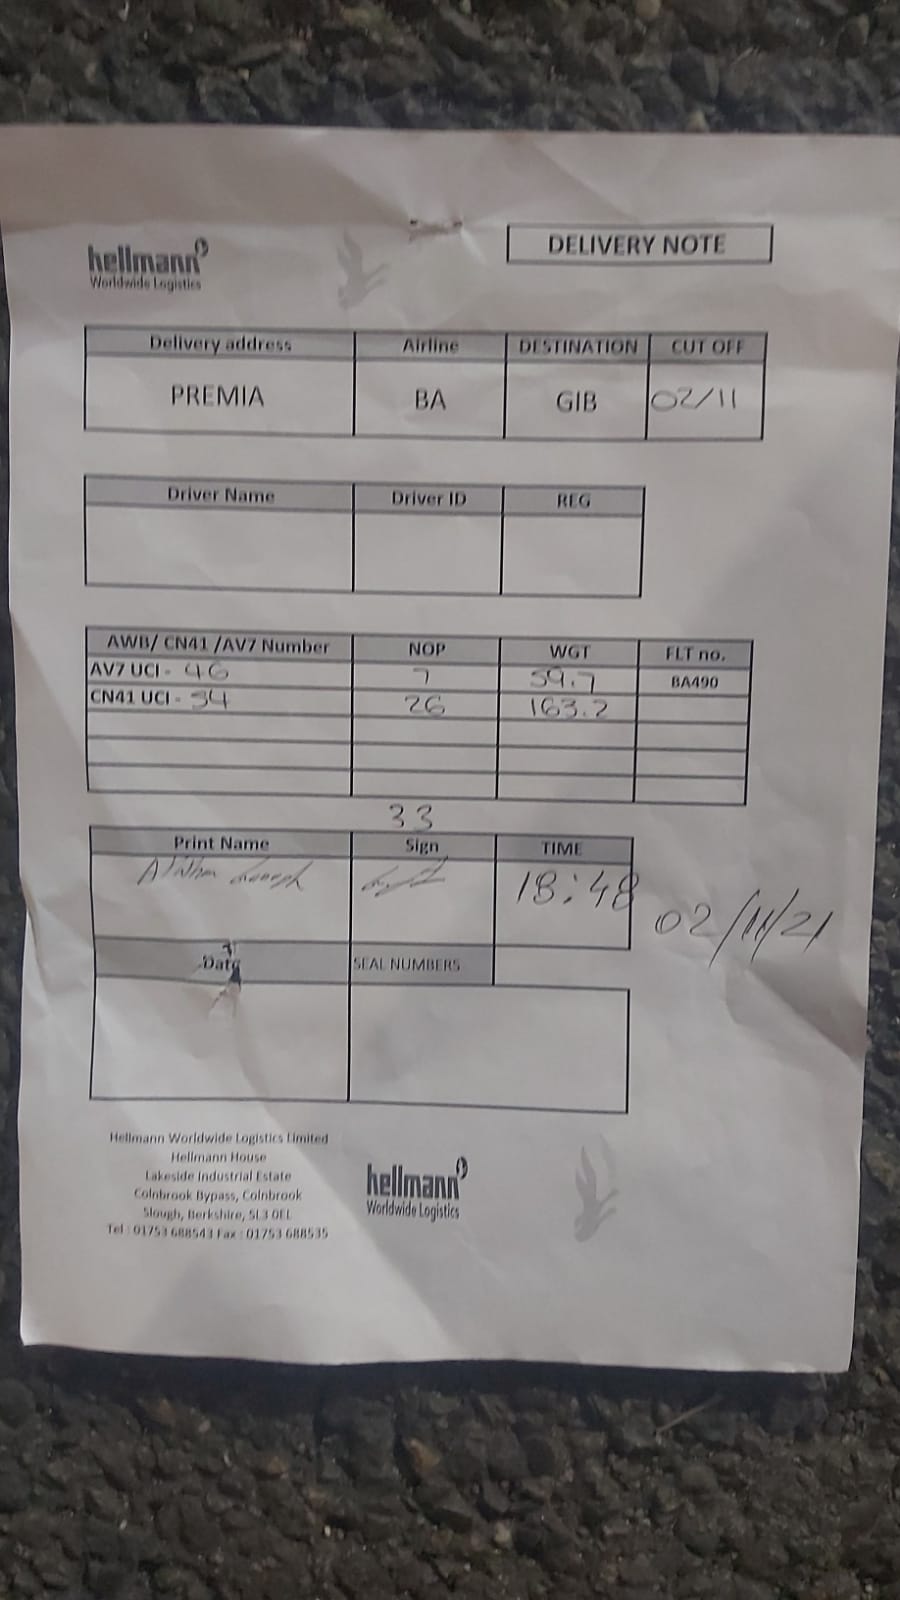 hellmann
Worldwide Logistics
DELIVERY NOTE
Delivery address Airline DESTINATION CUT OFF
PREMIA BA GIB 02/11
Driver Name Driver ID REG
AWB/ CN41 /AV7 Number NOP WGT FLT no.
AV7 UCI - 46 7 59.7 BA490
CN41 UCI - 54 26 163.2
33
Print Name Sign TIME
18:48
02/11/21
Date SEAL NUMBERS
Hellmann Worldwide Logistics Limited
Hellmann House
Lakeside Industrial Estate
Colnbrook Bypass, Colnbrook
Slough, Berkshire, SL3 0EL
Tel : 01753 688543 Fax : 01753 688535
hellmann
Worldwide Logistics